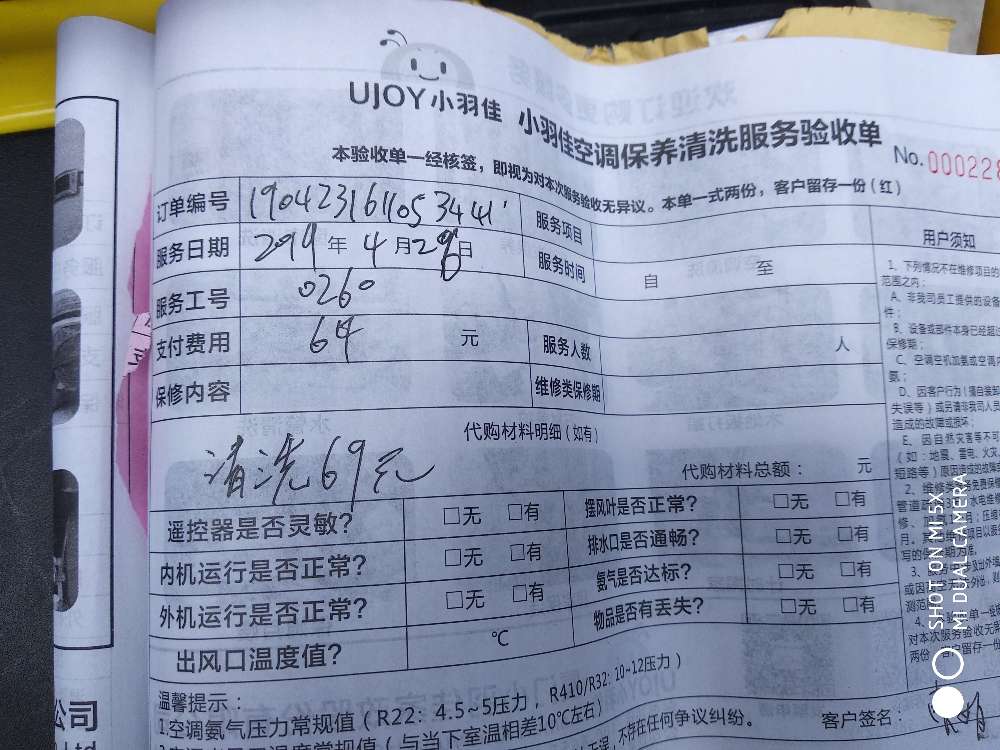 UJOY小羽佳 小羽佳空调保养清洗服务验收单
No. 000228
本验收单一经核签，即视为对本次服务验收无异议。本单一式两份，客户留存一份（红）
订单编号 190423161105 3441 服务项目
服务日期 2019 年 4 月 29 日 服务时间 自 至
服务工号 0260
支付费用 64 元 服务人数 人
保修内容 维修类保修期
代购材料明细（如有）
清洗69元
代购材料总额： 元
遥控器是否灵敏？ □无 □有 摆风叶是否正常？ □无 □有
内机运行是否正常？ □无 □有 排水口是否通畅？ □无 □有
外机运行是否正常？ □无 □有 氨气是否达标？ □无 □有
出风口温度值？ ℃ 物品是否有丢失？ □无 □有
温馨提示：
1.空调氨气压力常规值（R22：4.5~5压力，R410/R32: 10~12压力）
（与当下室温相差10℃左右）
不存在任何争议纠纷。
客户签名：
用户须知
1、下列情况不在维修项目的
范围之内：
A、非我司员工提供的设备
件；
B、设备或部件本身已经超过
保修期；
C、空调空机加氨或空调内
氨；
D、因客户行为（擅自装卸
失误等）或另请非我司人员
造成的故障或损坏；
E、因自然灾害等不可
（如：地震、雷电、火灾、
短路等）原因造成的故障
公司
Ltd
SHOT ON MI 5X
MI DUAL CAMERA